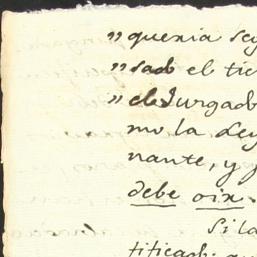 " queria seg
" sad el tie
" el Jurgad
mo la Ley
nante, y
debe oir.
Si la
tificad